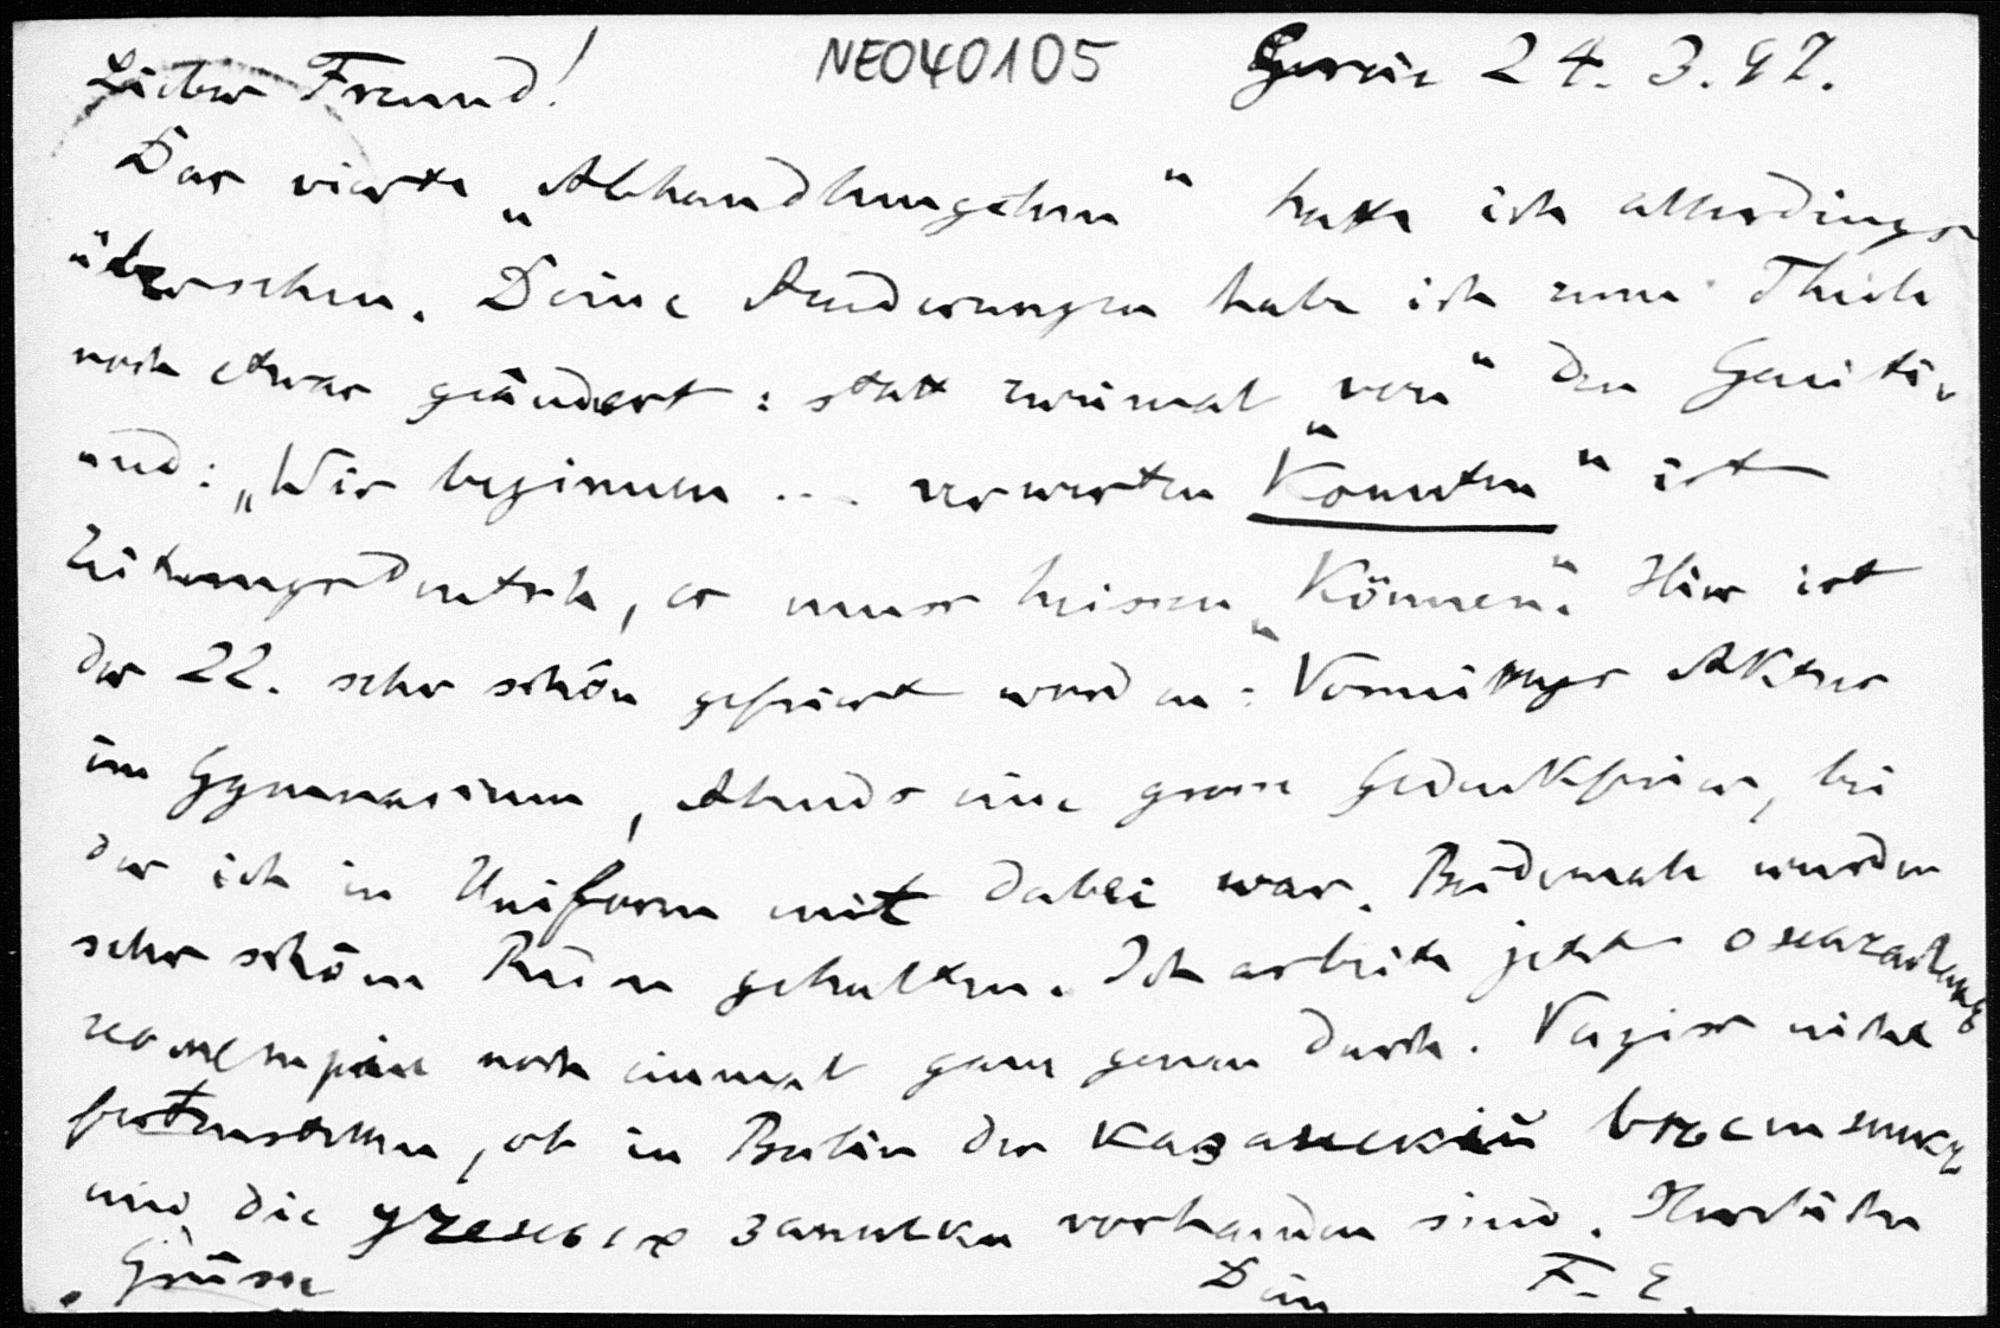 Lieber Freund! NEO40105 Gera 24. 3. 97.
Das vierte „Abhandlungchen" hatte ich allerdings
übersehen. Deine Aenderungen habe ich zum Theile
noch etwas geändert: statt zweimal „von" den Genitiv
und: „Wir beginnen ... verwerten Konnten" ist
Zeitungsdeutsch, es muss heissen „Können". Hier ist
der 22. sehr schön gefeiert worden: Vormittags Aktus
im Gymnasium, Abends eine grosse Gedenkfeier, bei
der ich in Uniform mit dabei war. Beidemale wurden
sehr schöne Reden gehalten. Ich arbeite jetzt о началахъ
геометріи noch einmal ganz genau durch. Vergiss nicht
festzustellen, ob in Berlin der казанскій вѣстникъ
und die ученыя записки vorhanden sind. Herzliche
Grüsse Dein F. E.